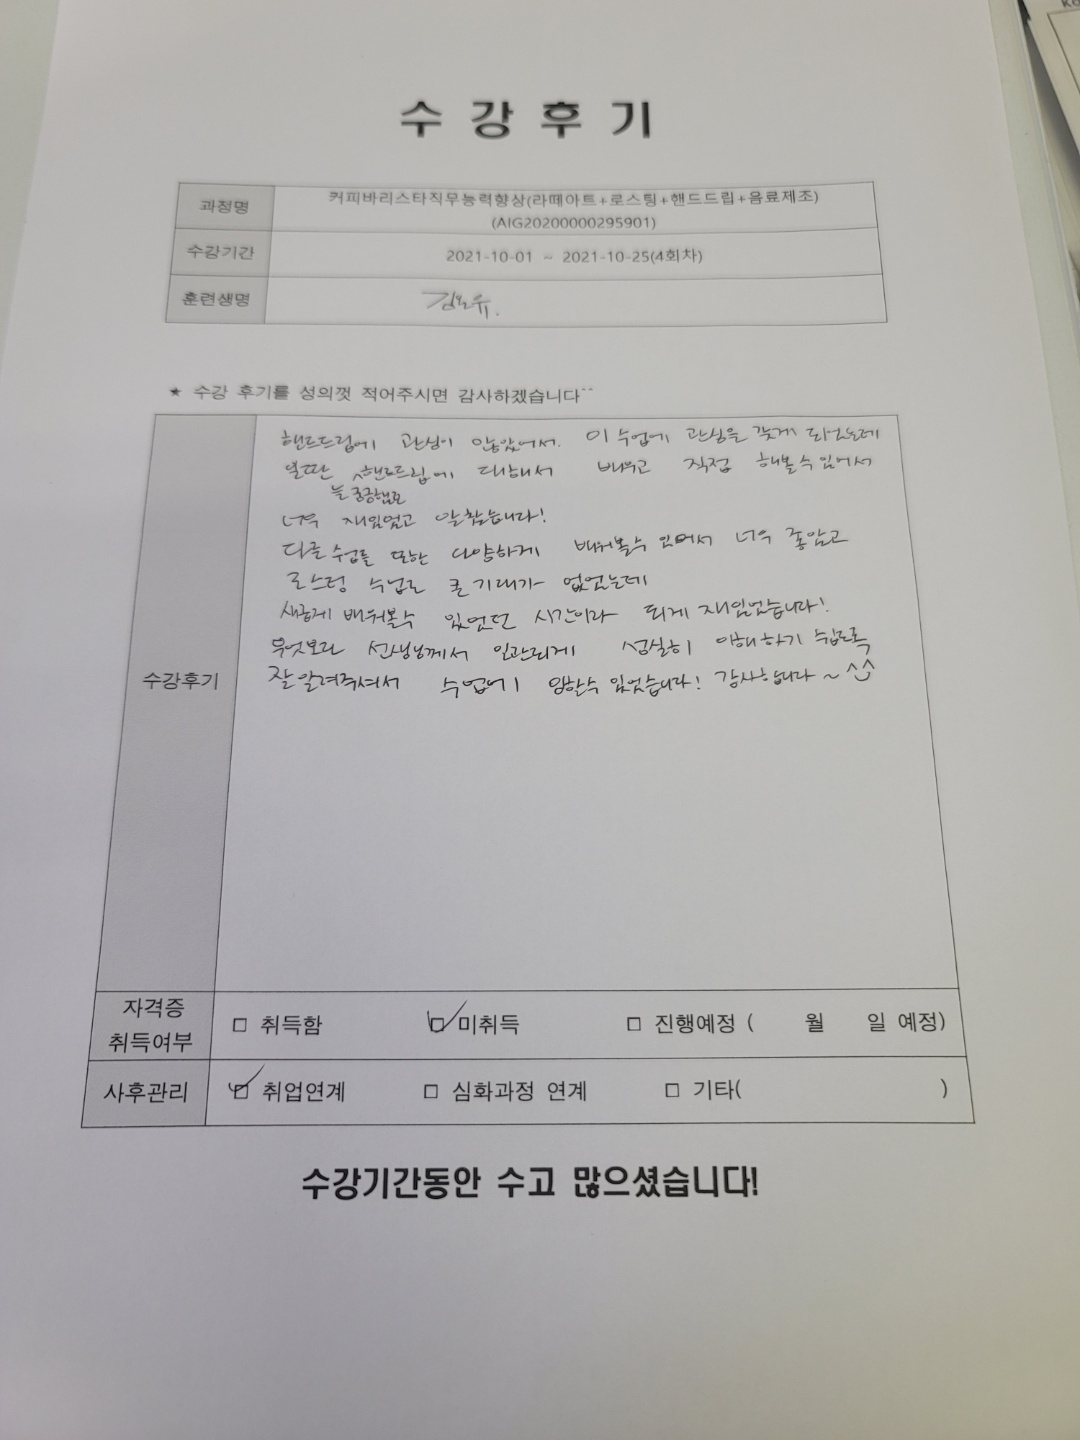 수 강 후 기
과정명
커피바리스타직무능력향상(라떼아트+로스팅+핸드드립+음료제조)
(AIG20200000295901)
수강기간
2021-10-01 ~ 2021-10-25(4회차)
훈련생명
★ 수강 후기를 성의껏 적어주시면 감사하겠습니다^^
핸드드립에 관심이 많았어서. 이 수업에 관심을 갖게 되었는데
핸드드립에 대해서 배우고 직접 해볼 수 있어서
늘 궁금했고
너무 재밌었고 알찼습니다!
수업를 또한 다양하게 배워볼수 있어서 너무 좋았고
로스팅 수업도 큰 기대가 없었는데
새롭게 배워볼수 있었던 시간이라 되게 재밌었습니다!
무엇보다 선생님께서 일관되게 성실히 이해하기 쉽도록
잘 알려주셔서 수업에 임할수 있었습니다! 감사합니다~^^
수강후기
자격증
취득여부
□ 취득함 □ 미취득 □ 진행예정 ( 월 일 예정)
사후관리
□ 취업연계 □ 심화과정 연계 □ 기타( )
수강기간동안 수고 많으셨습니다!